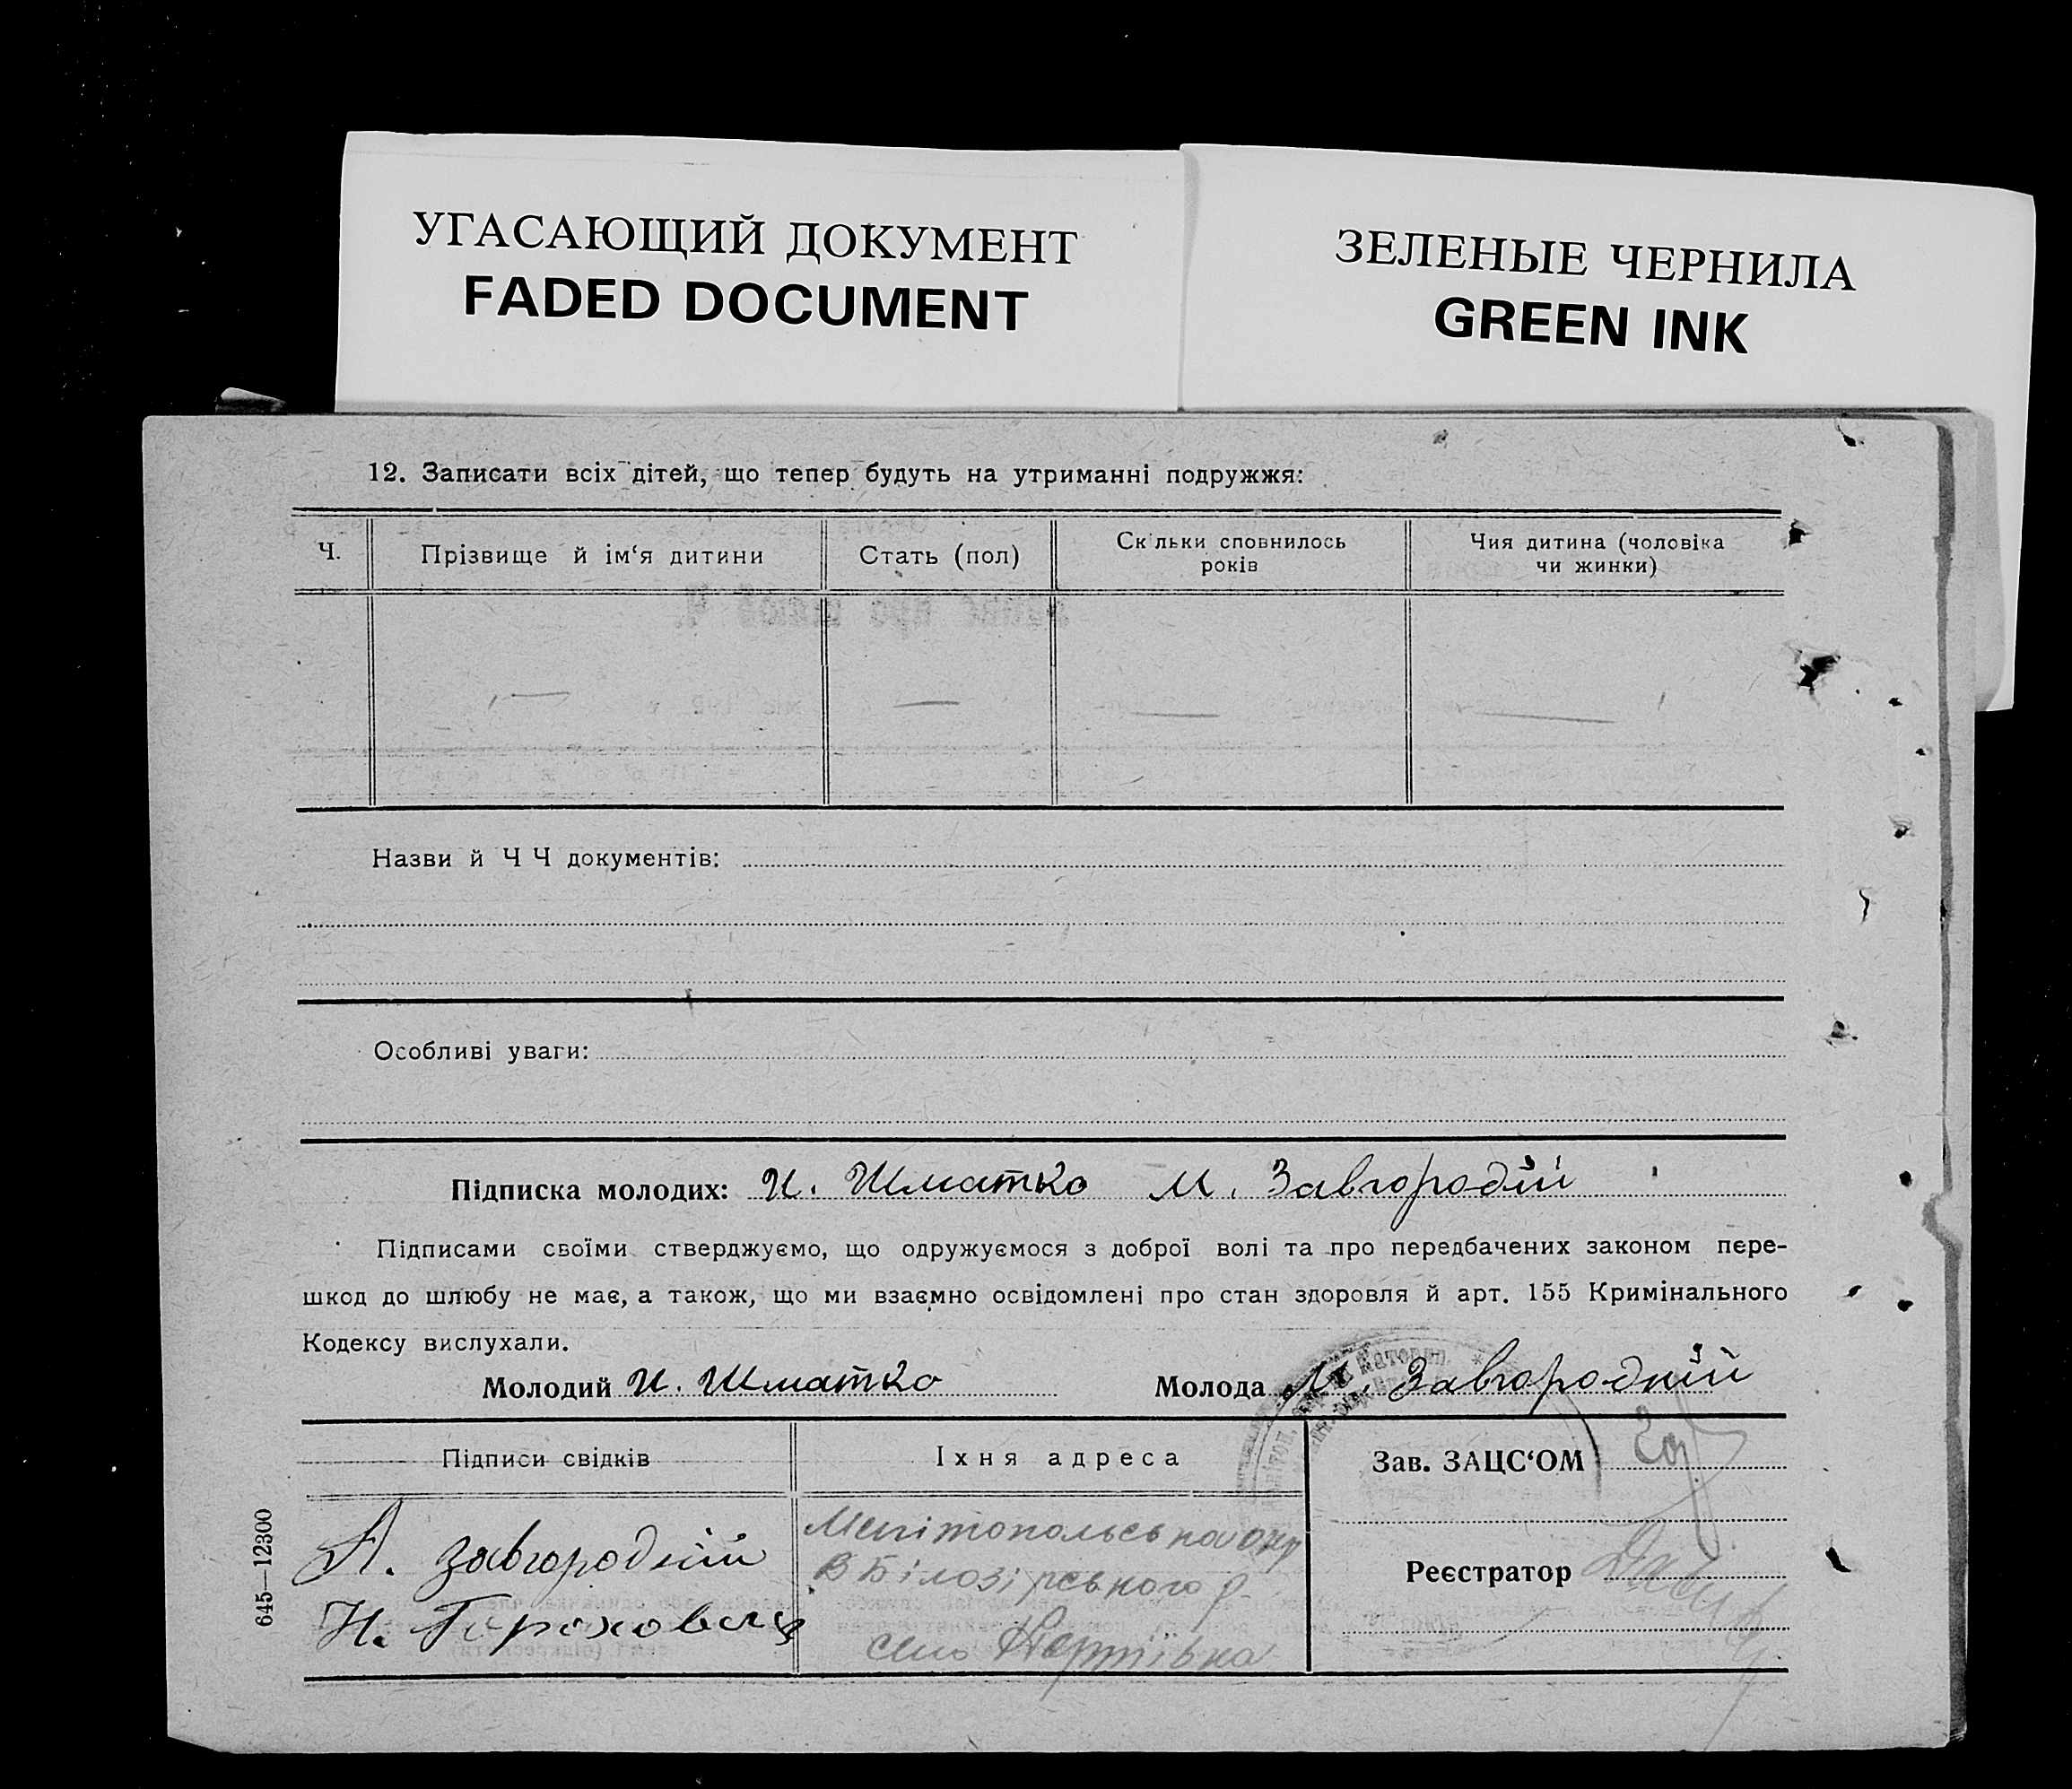 УГАСАЮЩИЙ ДОКУМЕНТ
FADED DOCUMENT
ЗЕЛЕНЫЕ ЧЕРНИЛА
GREEN INK
12. Записати всіх дітей, що тепер будуть на утриманні подружжя:
Ч.
Прізвище й ім‘я дитини
Стать (пол)
Скільки сповнилось
років
Чия дитина (чоловіка
чи жинки)
Назви й Ч Ч документів:
Особливі уваги:
Підписка молодих: И. Шматко М. Завгородній
Підписами своїми стверджуємо, що одружуємося з доброї волі та про передбачених законом пере-
шкод до шлюбу не має, а також, що ми взаємно освідомлені про стан здоровля й арт. 155 Кримінального
Кодексу вислухали.
Молодий И. Шматко
Молода М. Завгородній
Підписи свідків
Іхня адреса
Зав. ЗАЦС‘ОМ
А. Завгородній
Н.
Мелітопольська окр
В Білозірського р.
село
Реєстратор
645—12300